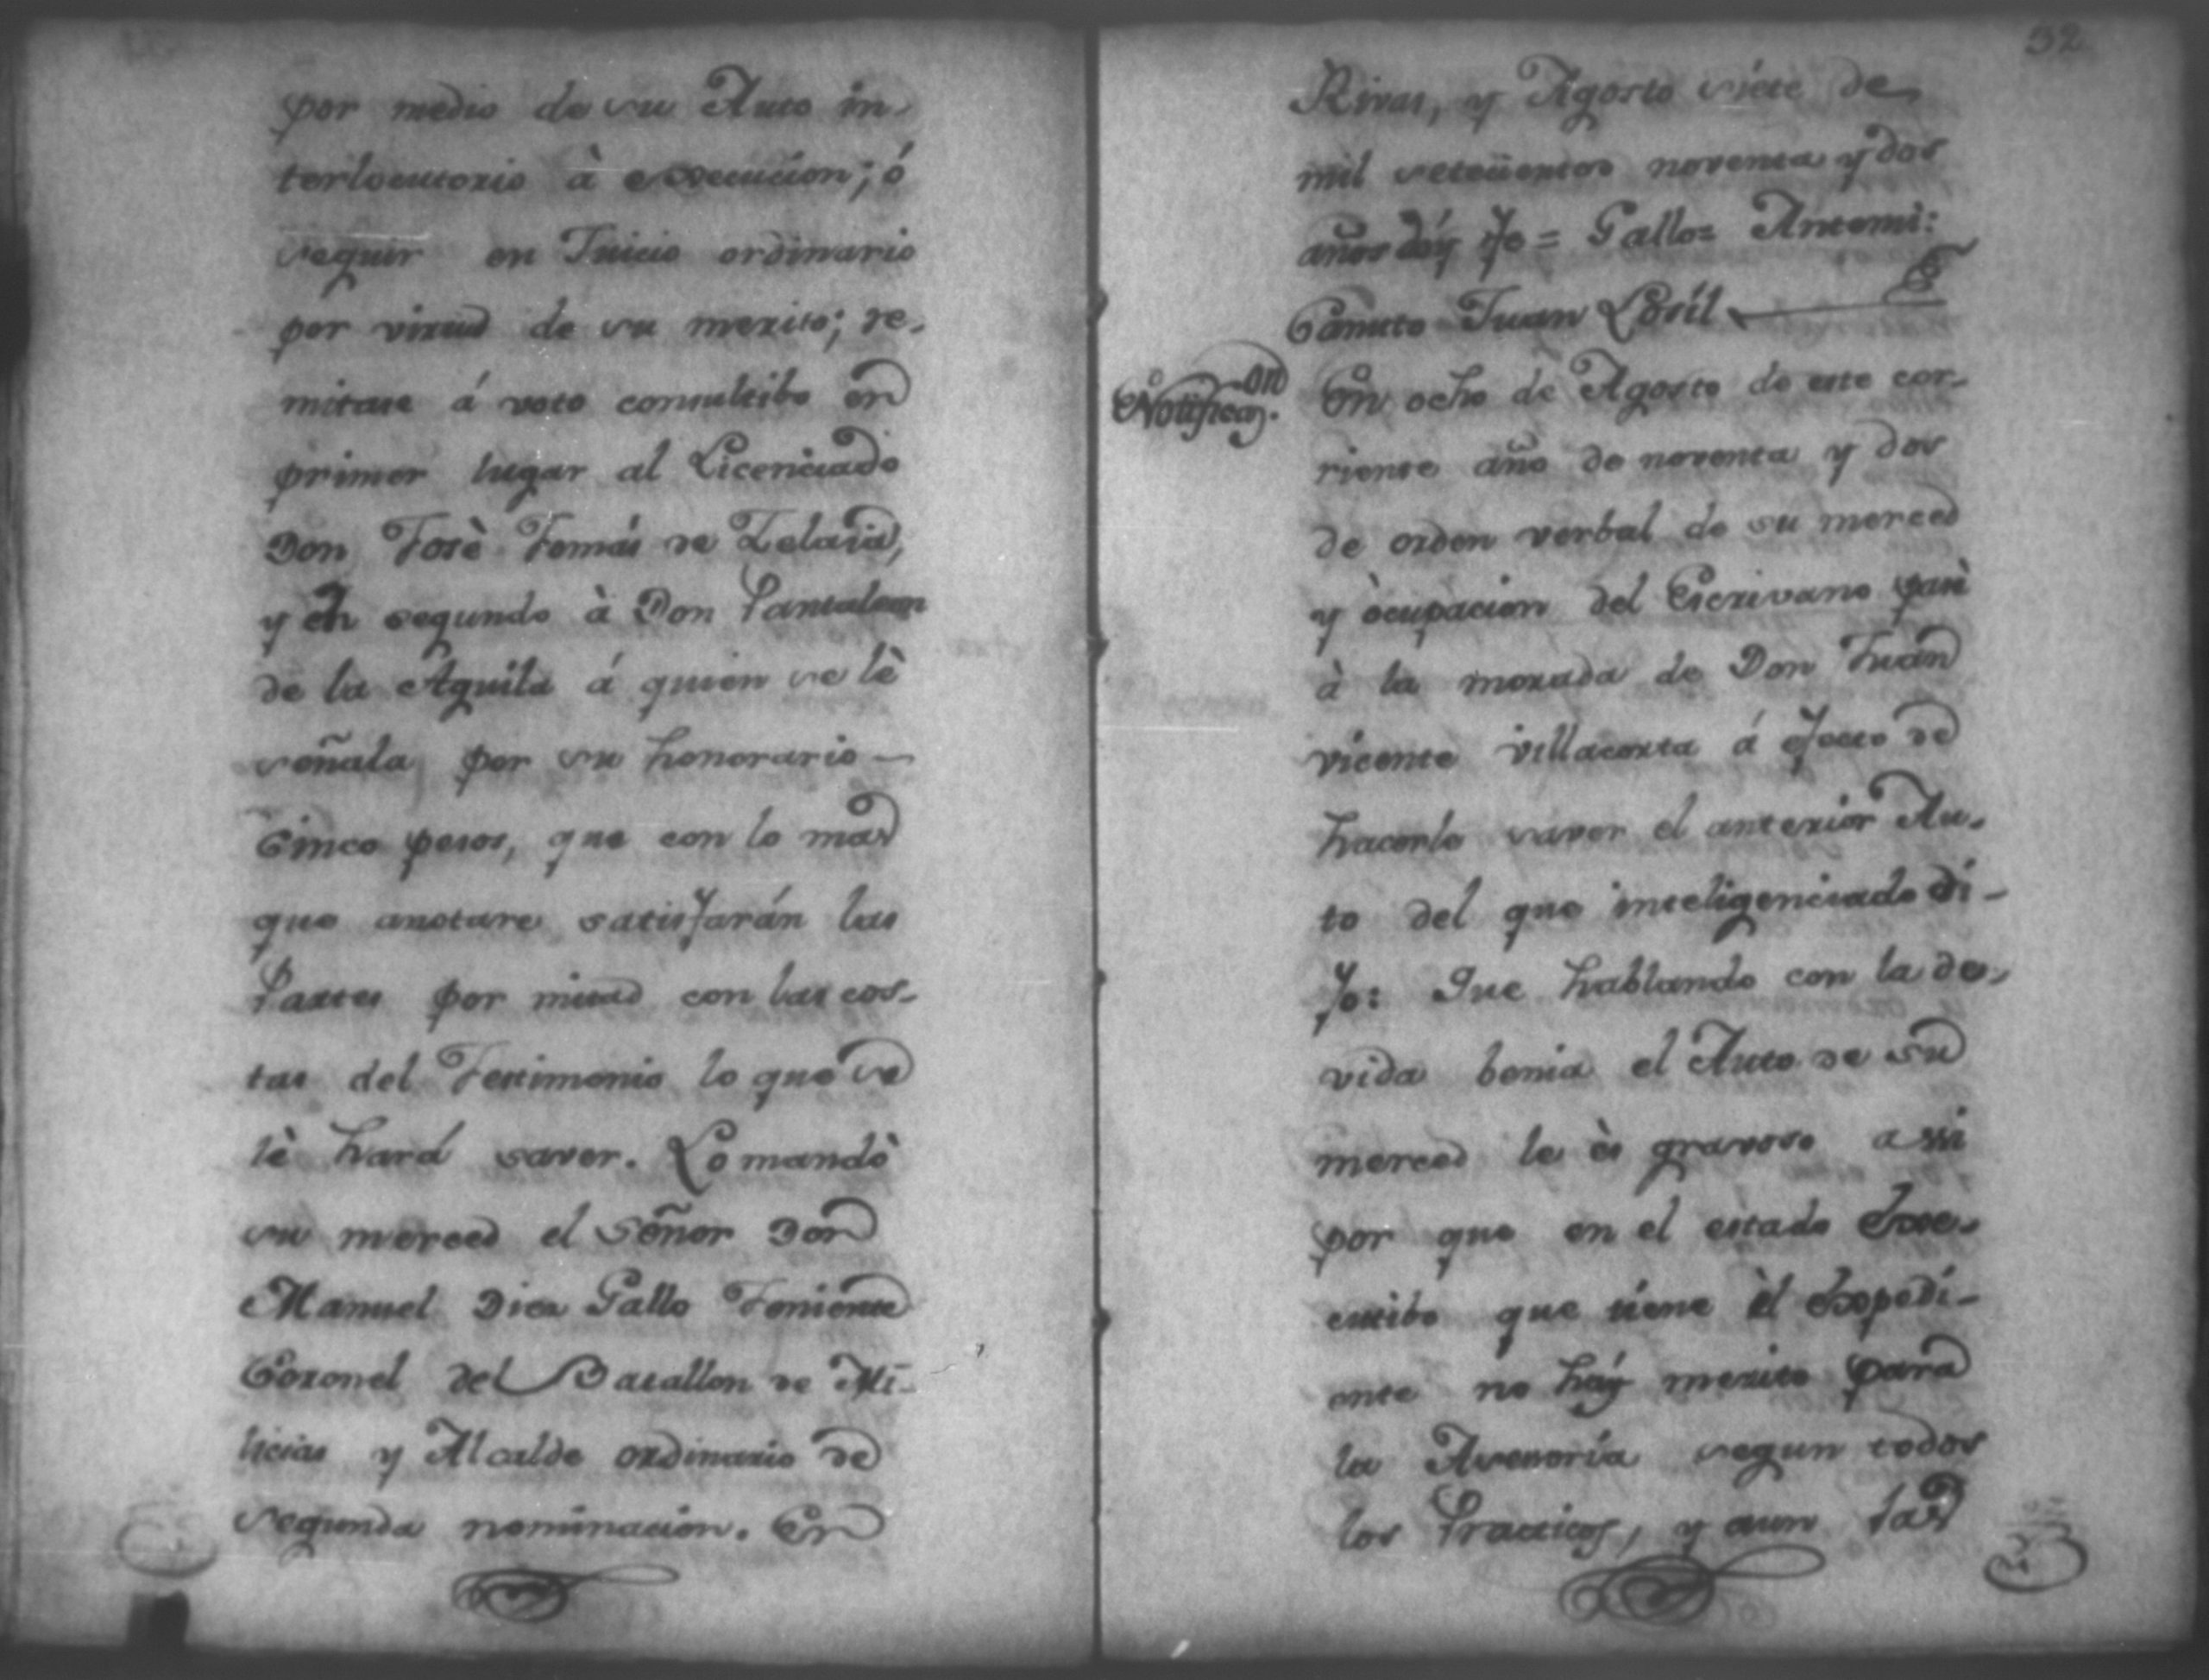 por medio de su Auto in-
terlocutorio à execucion; ó
seguir en Juicio ordinario
por virtud de su merito; re-
mitase á voto consultibo en
primer lugar al Licenciado
Don Josè Tomás de Zelaia,
y en segundo à Don Pantaleon
de la Aguila á quien se lè
señala por su honorario
Cinco pesos, que con lo mas
que anotare satisfarán las
Partes por mitad con las cos-
tas del Testimonio lo que se
lè hará saver. Lo mandò
su merced el Señor Don
Manuel Diez Gallo Teniente
Coronel del Batallon de Mi-
licias y Alcalde ordinario de
segunda nominacion. En
32
Rivas, y Agosto siete de
mil setecientos noventa y dos
años dóy fe = Gallo = Antemi:
Canuto Juan
Notificaz.on
En ocho de Agosto de este cor-
riente año de noventa y dos
de orden verbal de su merced
y òcupacion del Escrivano pasè
à la morada de Don Juan
vicente villacorta á efecto de
hacerle saver el anterior Au-
to del que inteligenciado di-
jo: Que hablando con la de-
vida benia el Auto de su
merced le ès gravoso a si
por que en el estado Exe-
cutibo que tiene èl Expedi-
ente no háy merito para
la Asesoría segun todos
los Practicos, y aun las